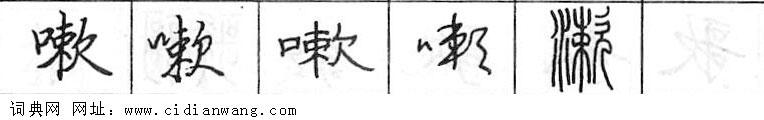 嗽 嗽 嗽 嗽 漱
词典网 网址：www.cidianwang.com